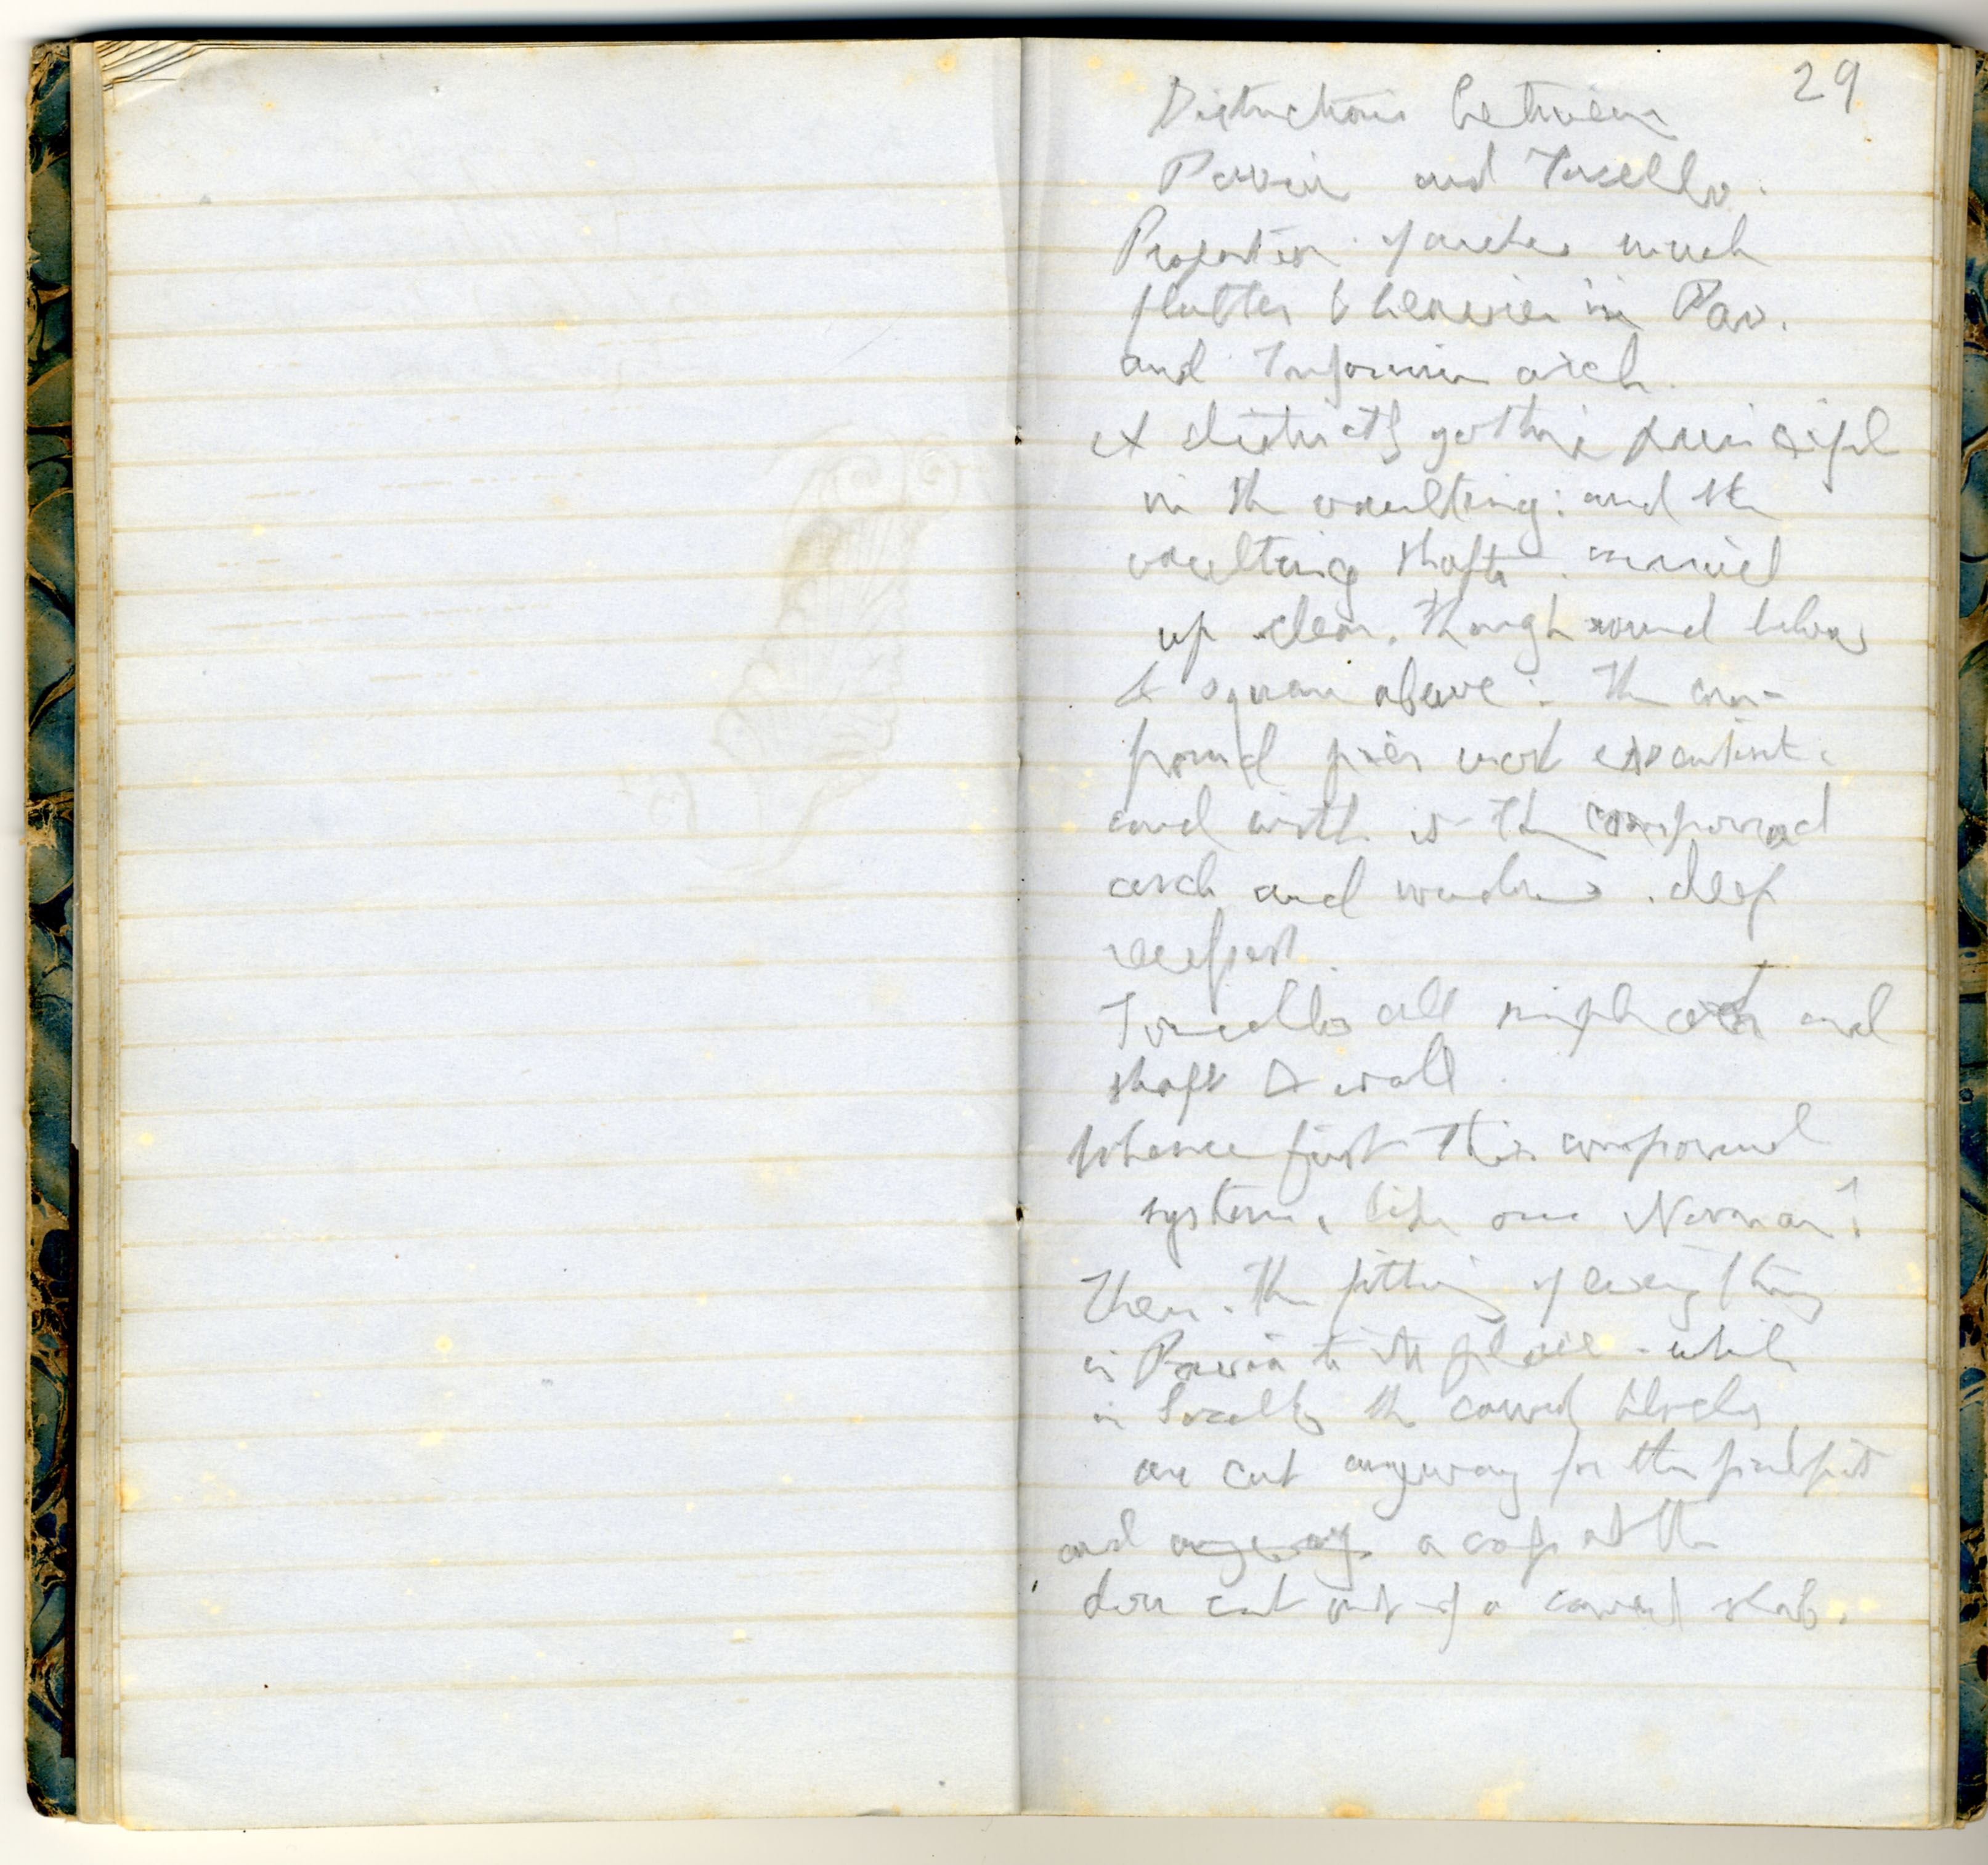 29
Distinctions between
Pavia and Torcello.
Proportion of arches much
flatter & heavier in Pav.
and arch.
A distinctly gothic principle
in the vaulting: and the
vaulting shafts carried
up clear, though round below
& square above: The com-
pound piers most
and with is the compound
arch and windows. deep
recessed.
Torcello all simple arch and
shaft & wall
Whence first this compound
system, like our Norman?
Then. The fitting of every thing
in Pavia to its place - while
in Torcello the carved blocks
are cut anyway for the pulpit
and anyway a cap at the
door cut out of a carved slab.